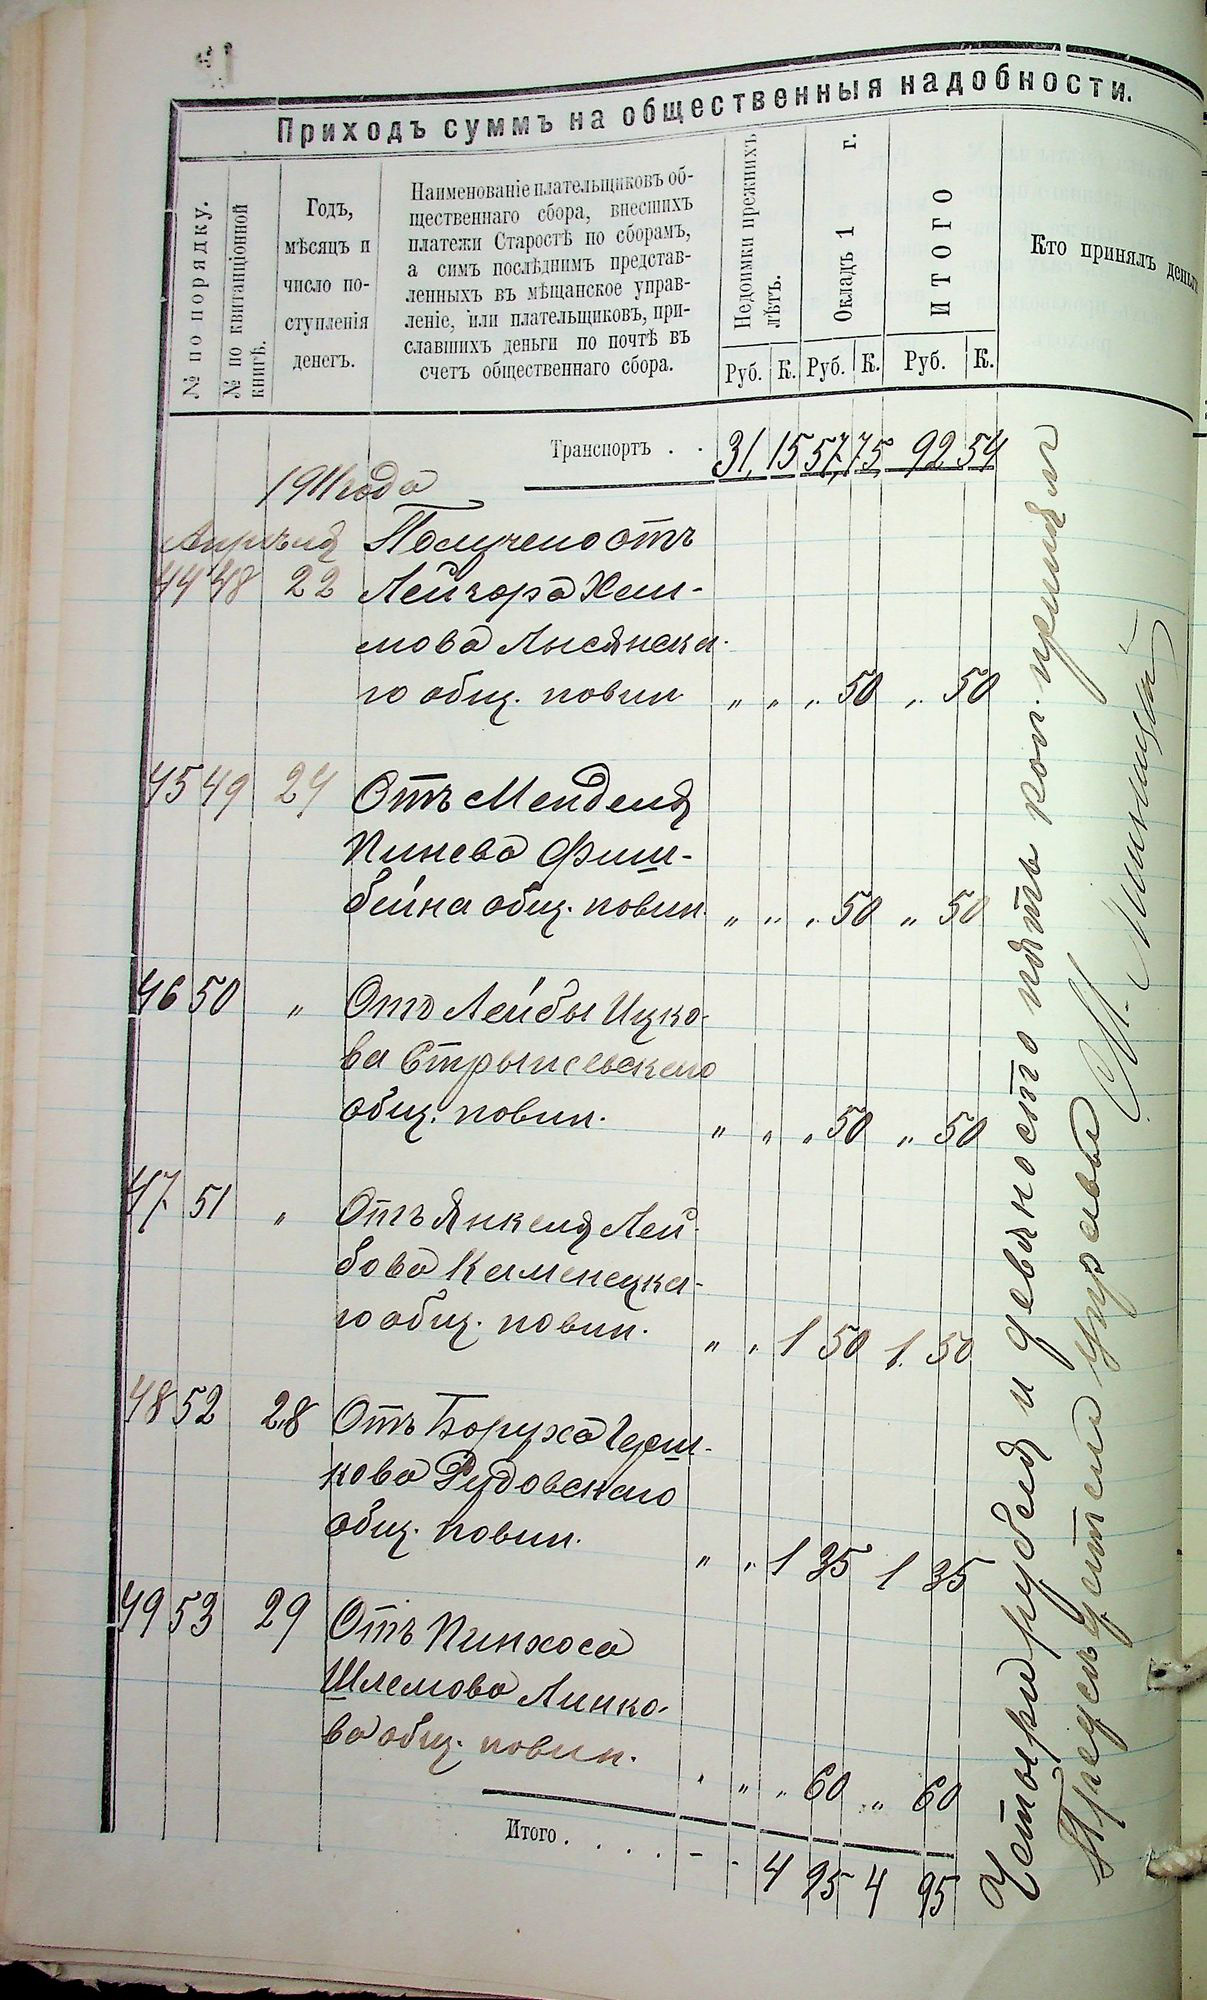 Приходъ суммъ на общественныя надобности.
№ по порядку.
№ по квитанціонной
книгѣ.
Годъ,
мѣсяцъ и
число по-
ступленія
денегъ.
Наименованіе плательщиковъ об-
щественнаго сбора, внесшихъ
платежи Старостѣ по сборамъ,
а симъ послѣднимъ представ-
ленныхъ въ мѣщанское управ-
леніе, или плательщиковъ, при-
славшихъ деньги по почтѣ въ
счетъ общественнаго сбора.
Недоимки прежнихъ
лѣтъ.
Окладъ 1 г.
ИТОГО
Кто принялъ деньги
Руб. К. Руб. К. Руб. К.
Транспортъ . . 31 15 57 75 92 54
1911 года
Апрѣля Получено отъ
44 48 22 Хаи-
мова Лысянска-
го общ. повин. „ „ „ 50 „ 50
45 49 24 Отъ Менделя
Пинева Фиш-
бейна общ. повин. „ „ „ 50 „ 50
46 50 „ Отъ Лейбы Ицко-
ва
общ. повин. „ „ „ 50 „ 50
47 51 „ Отъ Янкеля Лей-
бова Каменецка-
го общ. повин. „ „ 1 50 1 50
48 52 28 Отъ Боруха Герш-
кова Рудовскаго
общ. повин. „ „ 1 35 1 35
49 53 29 Отъ Пинхоса
Шлемова Линко-
ва общ. повин. „ „ „ 60 „ 60
Итого . . . . - - 4 95 4 95
Четыри рубля и девяносто пять коп. принялъ
Предсѣдатель управы М.